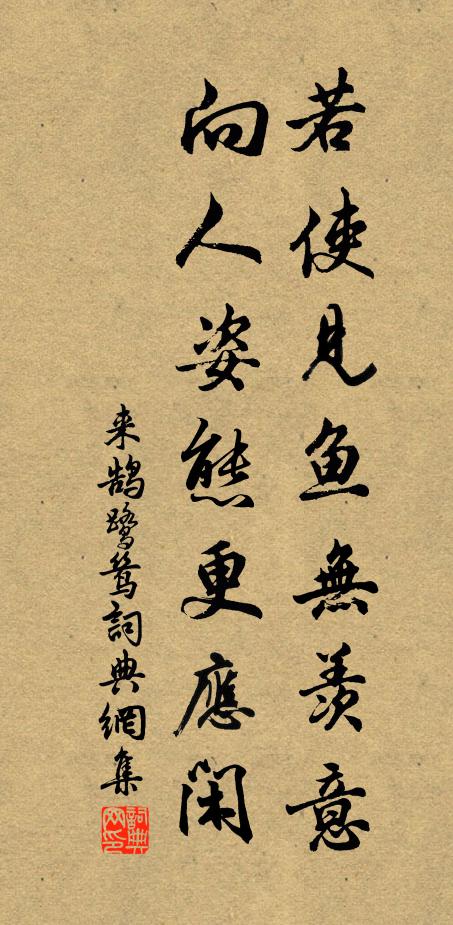 若使見魚無羨意
向人姿態更應閑
来鵠鷺鸶詞典網集
詞典网印